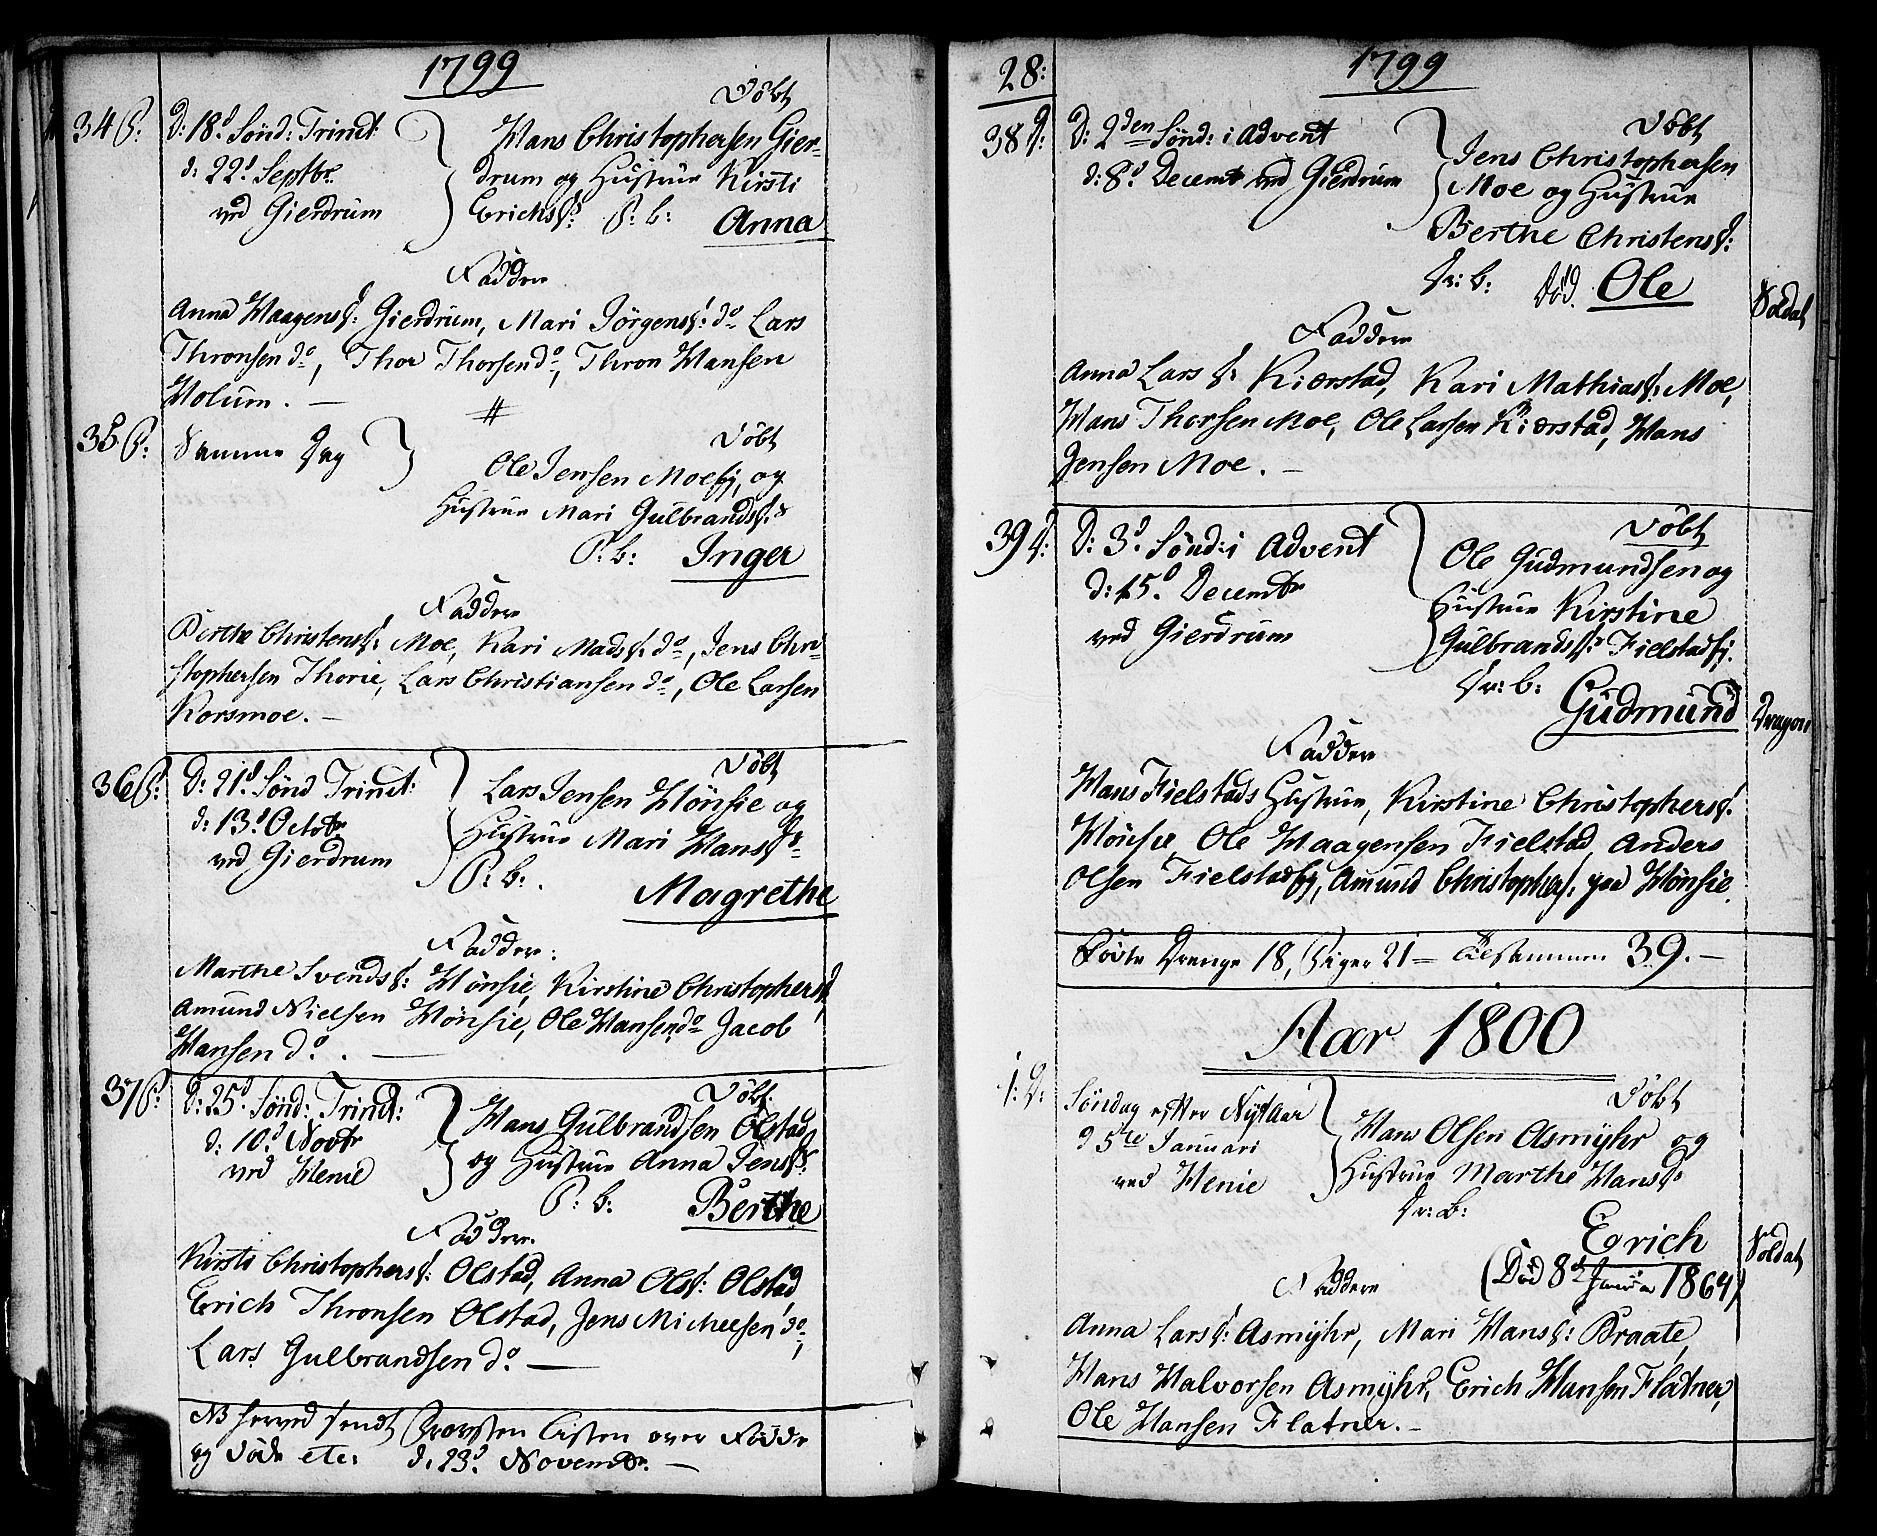 1799
34 P: D: 18d Sönd: Trinit Döbt
d: 22d Septbr Hans Christophersen Gier-
ved Gierdrum drum og Hustrue Kirsti
Erichsd: P: b: Anna
Faddere
Anna Haagensd: Gierdrum, Mari Jörgensd: do Lars
Thronsen do, Thor Thorsen do, Thron Hansen
Holum. —
35 P: Samme Dag Döbt
Ole Jensen Moeej, og
Hustrue Mari Gulbrandsd:
P: b: Inger
Faddere
Berthe Christensd: Moe, Kari Madsd: do, Jens Chri-
stophersen Thorie, Lars Christiansen do, Ole Larsen
Korsmoe. —
36 P: D: 21d Sönd Trinit: Döbt
d: 13d Octobr Lars Jensen Hönsie og
ved Gierdrum Hustrue Mari Hansd:
P: b: .
Magrethe
Faddere:
Marthe Svendsd: Hönsie, Kirstine Christophersd
Amund Nielsen Hönsie, Ole Hansen do Jacob
Hansen do. —
37 P: D: 25d Sönd: Trinit: Döbt:
d: 10d Novbr Hans Gulbrandsen Olstad
ved Henie og Hustrue Anna Jensd:
P: b: Berthe
Faddere.
Kirsti Christophersd: Olstad, Anna Olsd: Olstad
Erich Thronsen Olstad, Jens Michelsen do,
Lars Gulbrandsen do —
NB herved sendt Provsten Listen over Födde
og Döde etc: d: 23d Novembr. —
28: 1799
38 D: D: 2den Sönd: i Advent Döbt
d: 8d Decemb ved Gierdrum Jens Christophersen
Moe og Hustrue
Berthe Christensd:
Dr: b: Död. Ole Soldat
Faddere
Anna Larsd: Kiærstad, Kari Mathiasd: Moe,
Hans Thorsen Moe, Ole Larsen Kiærstad, Hans
Jensen Moe. —
39 D: D: 3d Sönd: i Advent Döbt
d: 15d Decembr Ole Gudmundsen og
ved Gierdrum Hustrue Kirstine
Gulbrandsd: Fielstadej.
Dr: b: Gudmund Dragon
Faddere
Hans Fielstads Hustrue, Kirstine Christophersd:
Hönsie Ole Haagensen Fielstad Anders
Olsen Fielstadej, Amund Christophers: paa Hönsie.
Dövte Drenge 18, Piger 21 = Tilsammen 39. —
Aar 1800
1: D: Söndag efter Nyt Aar Döbt
d 5te Januari Hans Olsen Asmyhr og
ved Henie Hustrue Marthe Hansd:
Dr: b:
Erich Soldat
Faddere (Död 8de Januar 1864)
Anna Larsd: Asmyhr, Mari Hansd: Braate,
Hans Halvorsen Asmyhr, Erich Hansen Flatner,
Ole Hansen Flatner. —